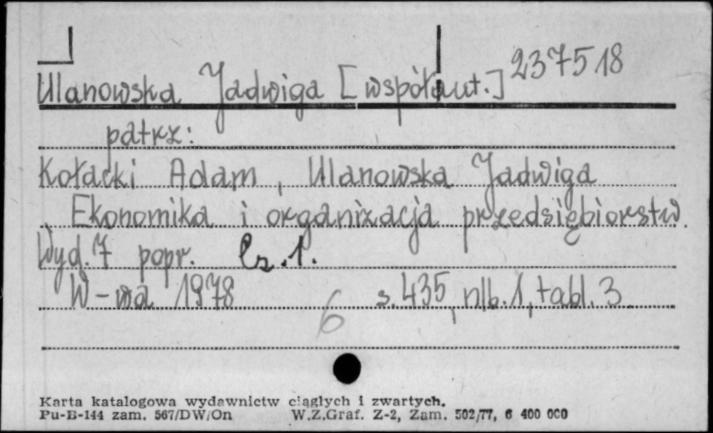 Ulanowska Jadwiga [współaut.] 237518
patrz:
Kołacki Adam, Ulanowska Jadwiga
Ekonomika i organizacja przedsiębiorstw.
Wyd. 7 popr. Cz. 1.
W-wa 1978 s. 435, nlb. 1, tabl. 3
6
Karta katalogowa wydawnictw ciągłych i zwartych.
Pu-B-144 zam. 567/DW/On W.Z.Graf. Z-2, Zam. 502/77, 6 400 000